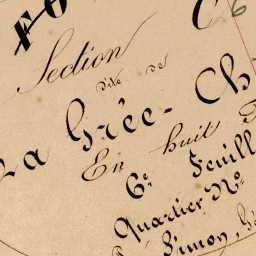 Section C
dite de
La Grée-Ch
En huit
6e Feuill
Quartier No
Simon,